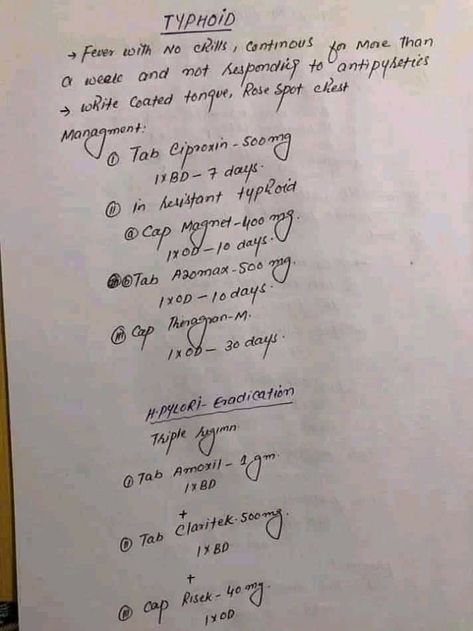 TYPHOID
→ Fever with No chills, continous for More than
a week and not Responding to antipyretics
→ White Coated tongue, Rose Spot chest
Managment:
(i) Tab Ciproxin - 500mg
1xBD - 7 days.
(ii) in Resistant typhoid
(a) Cap Magnet - 400 mg.
1xOD - 10 days.
(b) Tab Azomax - 500 mg.
1xOD - 10 days.
(iii) Cap Theragran-M.
1xOD - 30 days.
H-PYLORI- Eradication
Triple Regimn
(i) Tab Amoxil - 1gm.
1xBD
+
(ii) Tab Claritek - 500mg.
1xBD
+
(iii) Cap Risek - 40 mg.
1xOD